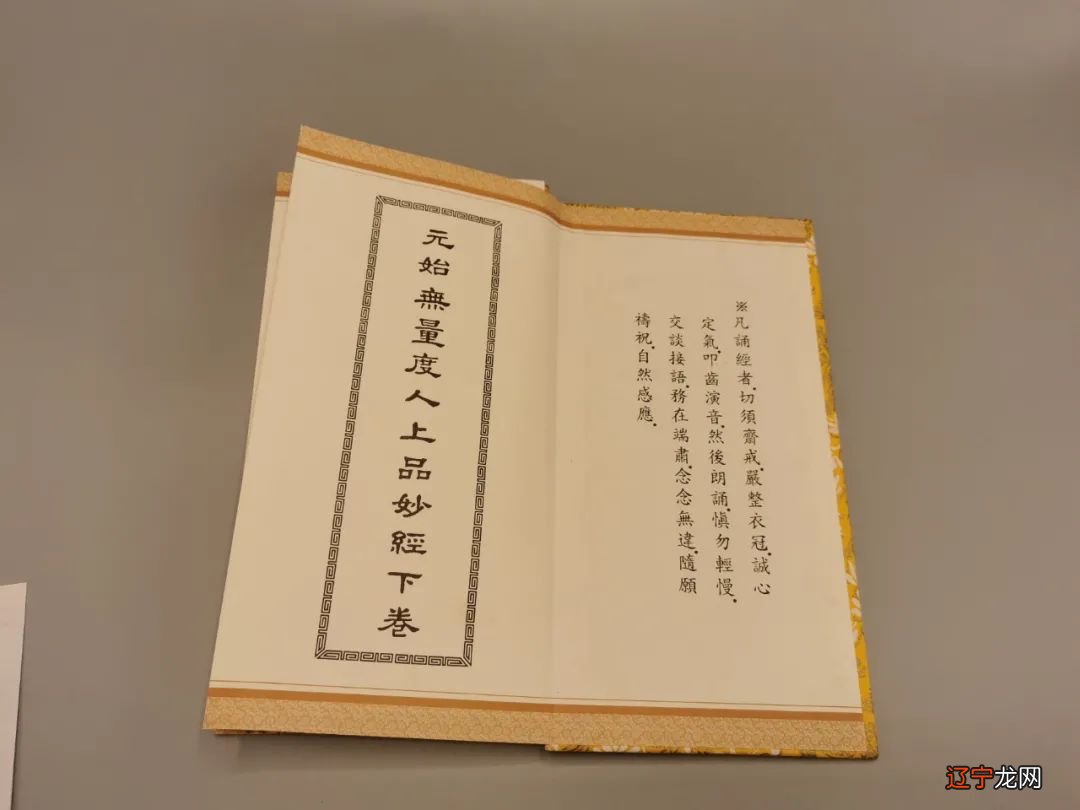 ※凡誦經者.切須齋戒.嚴整衣冠.誠心
定氣.叩齒演音.然後朗誦.慎勿輕慢.
交談接語.務在端肅.念念無違.隨願
禱祝.自然感應.
元始無量度人上品妙經下卷
辽宁龙网